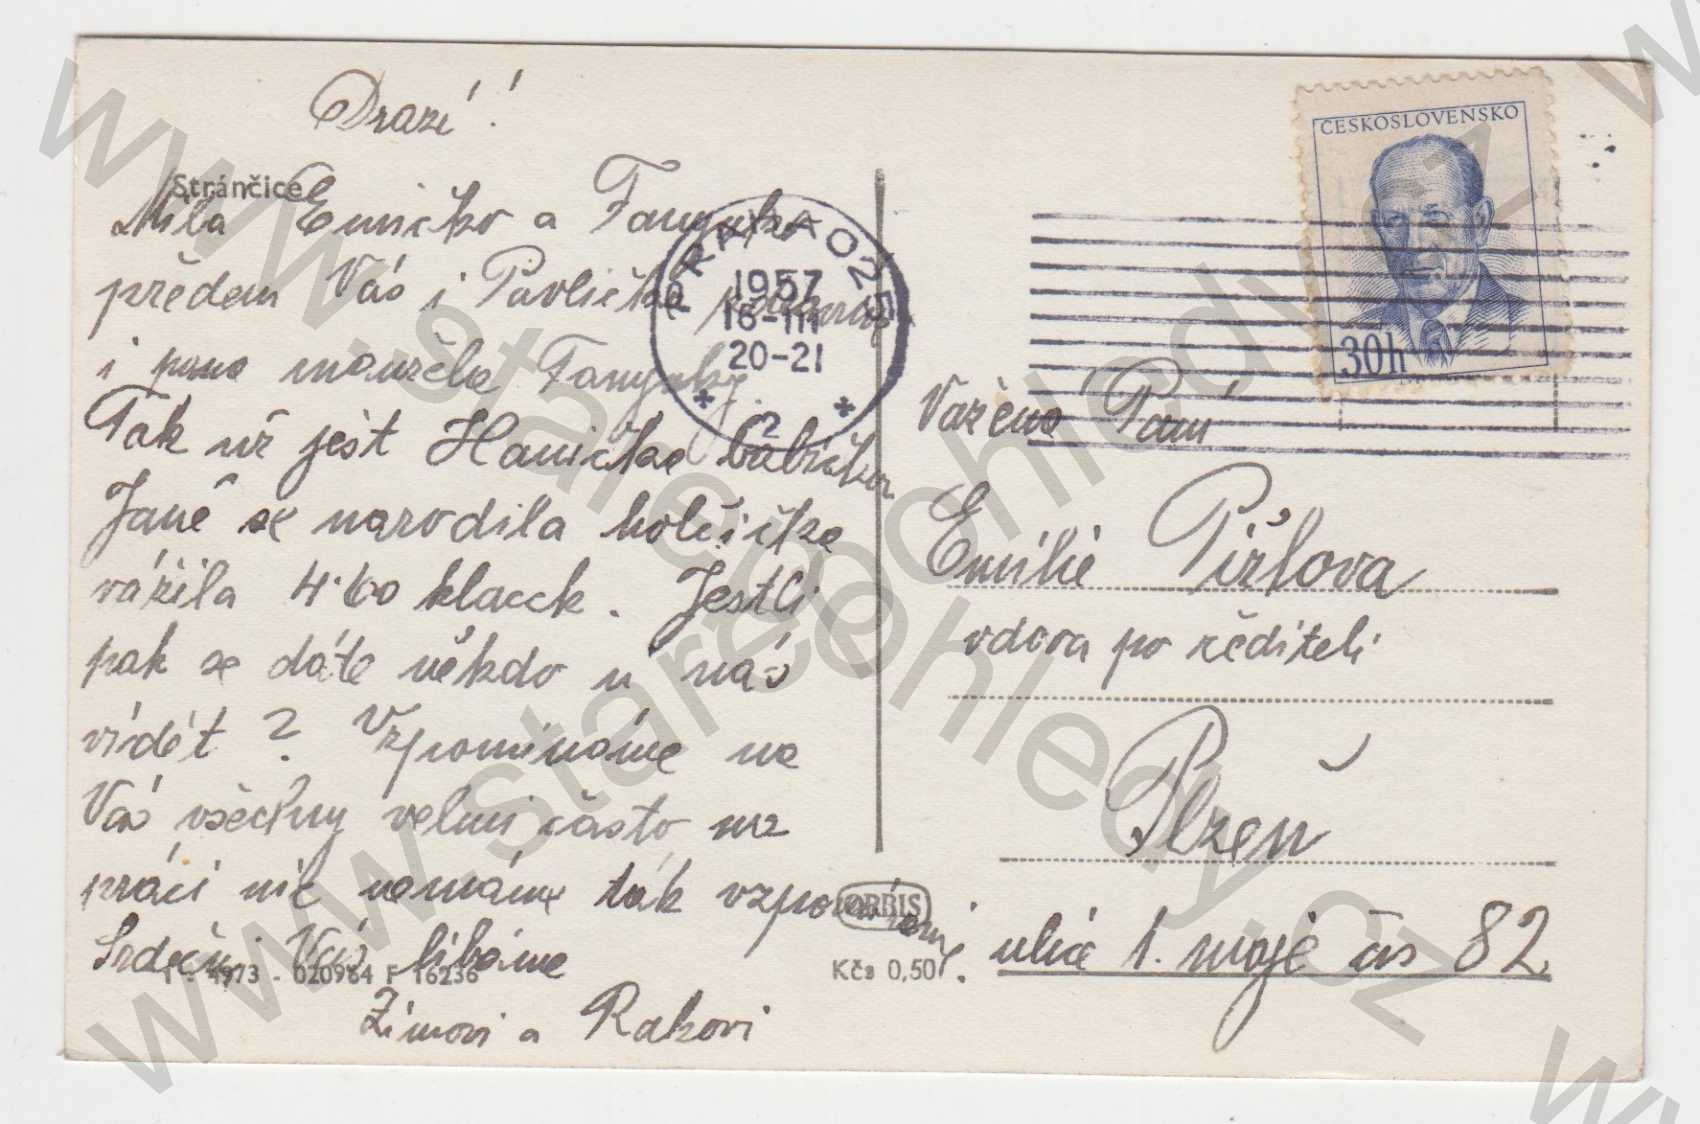 Drazí!
Stránčice
Milá Emičko a Fanynko
předem Vás i Pavlička pozdravuj
i pana manžela Fanynky.
Tak už jest Hanička babičkou
Janě se narodila holčička
vážila 4·60 klacek. Jestli
pak se dáte někdo u nás
vidět? Vzpomínáme na
Vás všechny velmi často na
práci nic nemáme tak vzpomínání.
Srdečně Vás líbáme
Zimovi a Rakovi
1 - 4973 - 020964 F 16236
ORBIS
Kčs 0,50
PRAHA 025
1957
18-III
20-21
* 2 *
ČESKOSLOVENSKO
30h
Vážená Paní
Emilie Pižlova
vdova po řediteli
Plzeň
ulice 1. máje čís 82
www.starepohledy.cz
www.starepohledy.cz